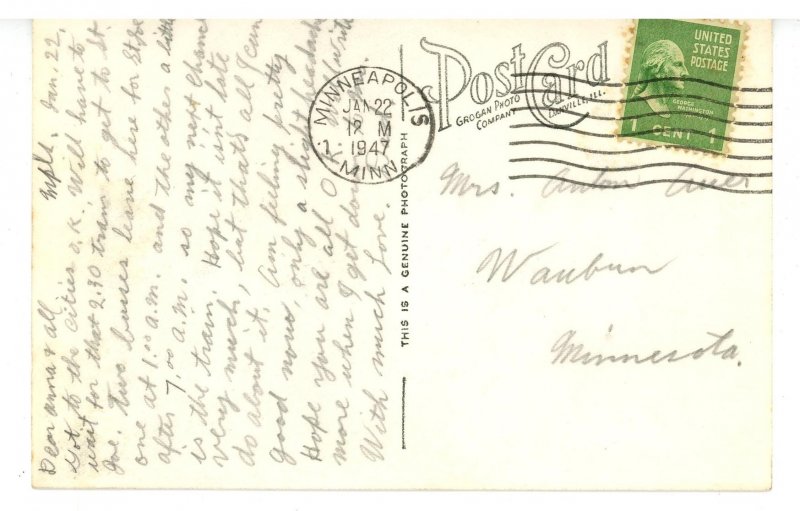 Mpls. Jan. 22,
Dear Anna & all
Got to the cities o.k. Will have to
wait for that 2:30 train to get to St.
Joe. Two busses leave here for St. Joe
one at 1:00 a.m. and the other a little
after 7:00 a.m. so my next chance
is the train. Hope it isn't late
very much, but that's all I can
do about it. Am feeling pretty
good now, only a slight headache
Hope you are all O.K. Write
more when I get down
With much love.
THIS IS A GENUINE PHOTOGRAPH
Post Card
GROGAN PHOTO
COMPANY
DANVILLE, ILL.
MINNEAPOLIS
JAN 22
12 M
1 1947
MINN.
UNITED
STATES
POSTAGE
GEORGE
WASHINGTON
1 CENT 1
Mrs. Anton Auer
Waubun
Minnesota.